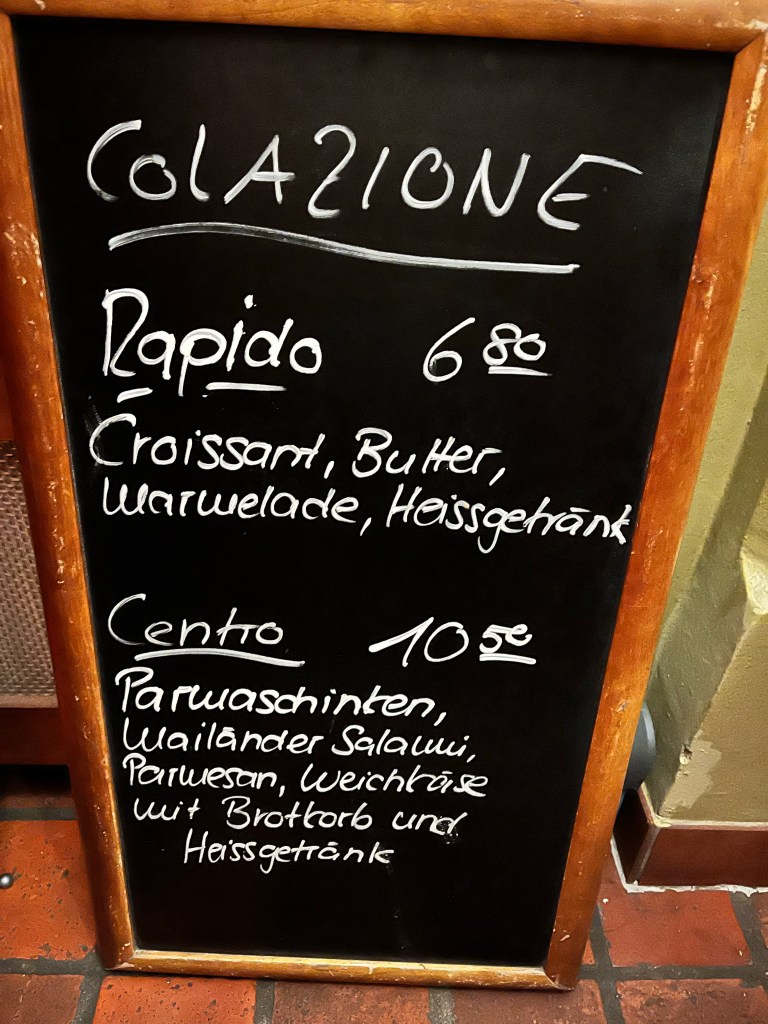 COLAZIONE
Rapido 6 80
Croissant, Butter,
Marmelade, Heissgetränk
Centro 10 50
Parmaschinken,
Mailänder Salami,
Parmesan, Weichkäse
mit Brotkorb und
Heissgetränk